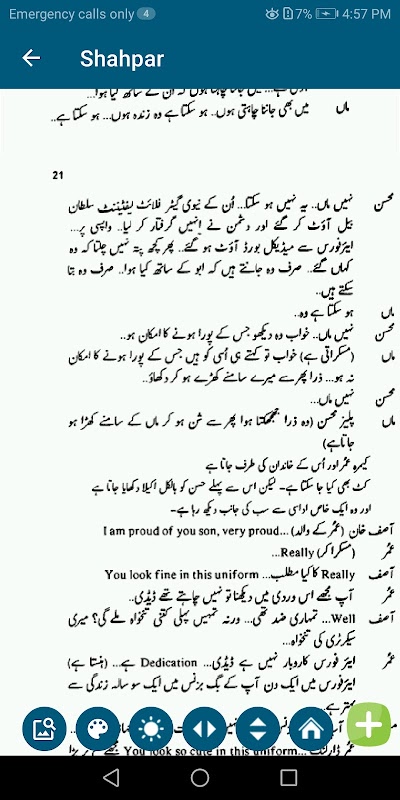 Emergency calls only 4 7% 4:57 PM
Shahpar
ماں میں بھی جاننا چاہتی ہوں.. ہو سکتا ہے وہ زندہ ہوں... ہو سکتا ہے..
21
محسن نہیں ماں.. یہ نہیں ہو سکتا... اُن کے نیوی گیٹر فلائٹ لیفٹیننٹ سلطان
بیل آؤٹ کر گئے اور دشمن نے انہیں گرفتار کر لیا.. واپسی پر...
ایئرفورس سے میڈیکل بورڈ آؤٹ ہو گئے.. پھر کچھ پتہ نہیں چلتا کہ وہ
کہاں گئے.. صرف وہ جانتے ہیں کہ ابو کے ساتھ کیا ہوا.. صرف وہ بتا
سکتے ہیں..
ماں ہو سکتا ہے وہ..
محسن نہیں ماں.. خواب وہ دیکھو جس کے پورا ہونے کا امکان ہو..
ماں (مسکراتی ہے) خواب تو کہتے ہی اُسی کو ہیں جس کے پورا ہونے کا امکان
نہ ہو... ذرا پھر سے میرے سامنے کھڑے ہو کر دکھاؤ..
محسن نہیں ماں...
ماں پلیز محسن (وہ ذرا جھجھکتا ہوا پھر سے شن ہو کر ماں کے سامنے کھڑا ہو
جاتا ہے)
کیمرہ عُمر اور اُس کے خاندان کی طرف جاتا ہے
کٹ بھی کیا جا سکتا ہے- لیکن اس سے پہلے حسن کو بالکل اکیلا دکھایا جاتا ہے
اور وہ ایک خاص اداسی سے سب کی جانب دیکھ رہا ہے-
آصف خان (عُمر کے والد) ...I am proud of you son, very proud
عُمر (مسکرا کر) Really...
آصف Really کا کیا مطلب... You look fine in this uniform
عُمر آپ مجھے اس وردی میں دیکھنا تو نہیں چاہتے تھے ڈیڈی..
آصف Well... تمہاری ضد تھی... ورنہ تمہیں پہلی کتنی تنخواہ ملے گی؟ میری
سیکرٹری کی تنخواہ...
عُمر ایئر فورس کاروبار نہیں ہے ڈیڈی... Dedication ہے... (ہنستا ہے)
ایئرفورس میں ایک دن آپ کے بگ بزنس میں ایک سو سالہ زندگی سے
بہتر ہے..
عُمر ڈارلنگ... You look so cute in this uniform